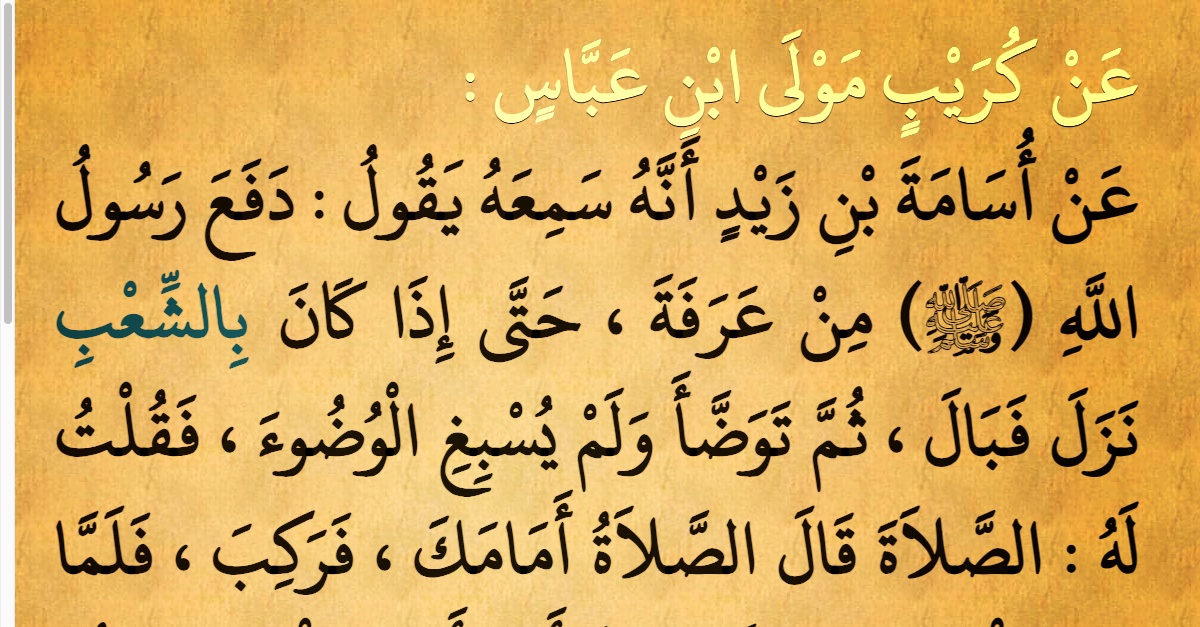 عَنْ كُرَيْبٍ مَوْلَى ابْنِ عَبَّاسٍ :
عَنْ أُسَامَةَ بْنِ زَيْدٍ أَنَّهُ سَمِعَهُ يَقُولُ : دَفَعَ رَسُولُ
اللَّهِ (ﷺ) مِنْ عَرَفَةَ ، حَتَّى إِذَا كَانَ بِالشِّعْبِ
نَزَلَ فَبَالَ ، ثُمَّ تَوَضَّأَ وَلَمْ يُسْبِغِ الْوُضُوءَ ، فَقُلْتُ
لَهُ : الصَّلاَةَ قَالَ الصَّلاَةُ أَمَامَكَ ، فَرَكِبَ ، فَلَمَّا